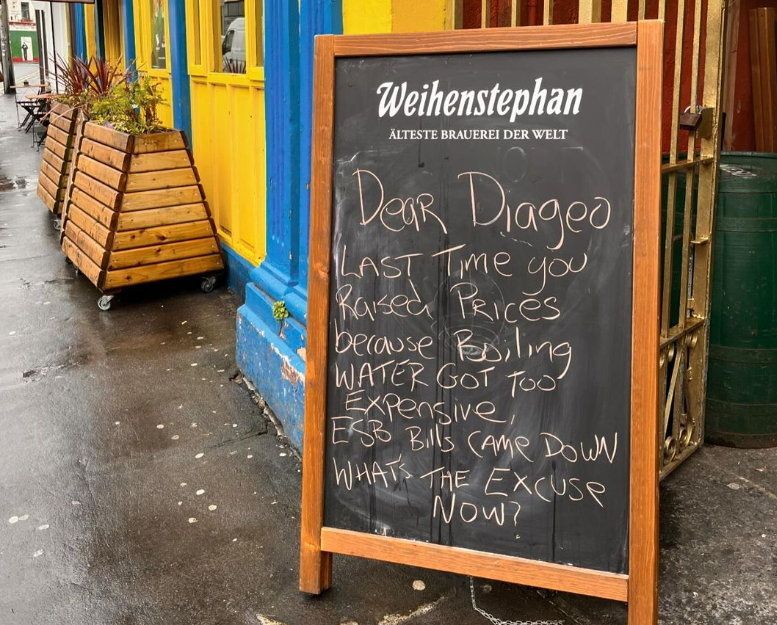 Weihenstephan
ÄLTESTE BRAUEREI DER WELT
Dear Diageo
LAST Time you
Raised Prices
because Boiling
WATER GOT Too
Expensive,
ESB Bills CAME DOWN
WHAT'S THE Excuse
NOW?